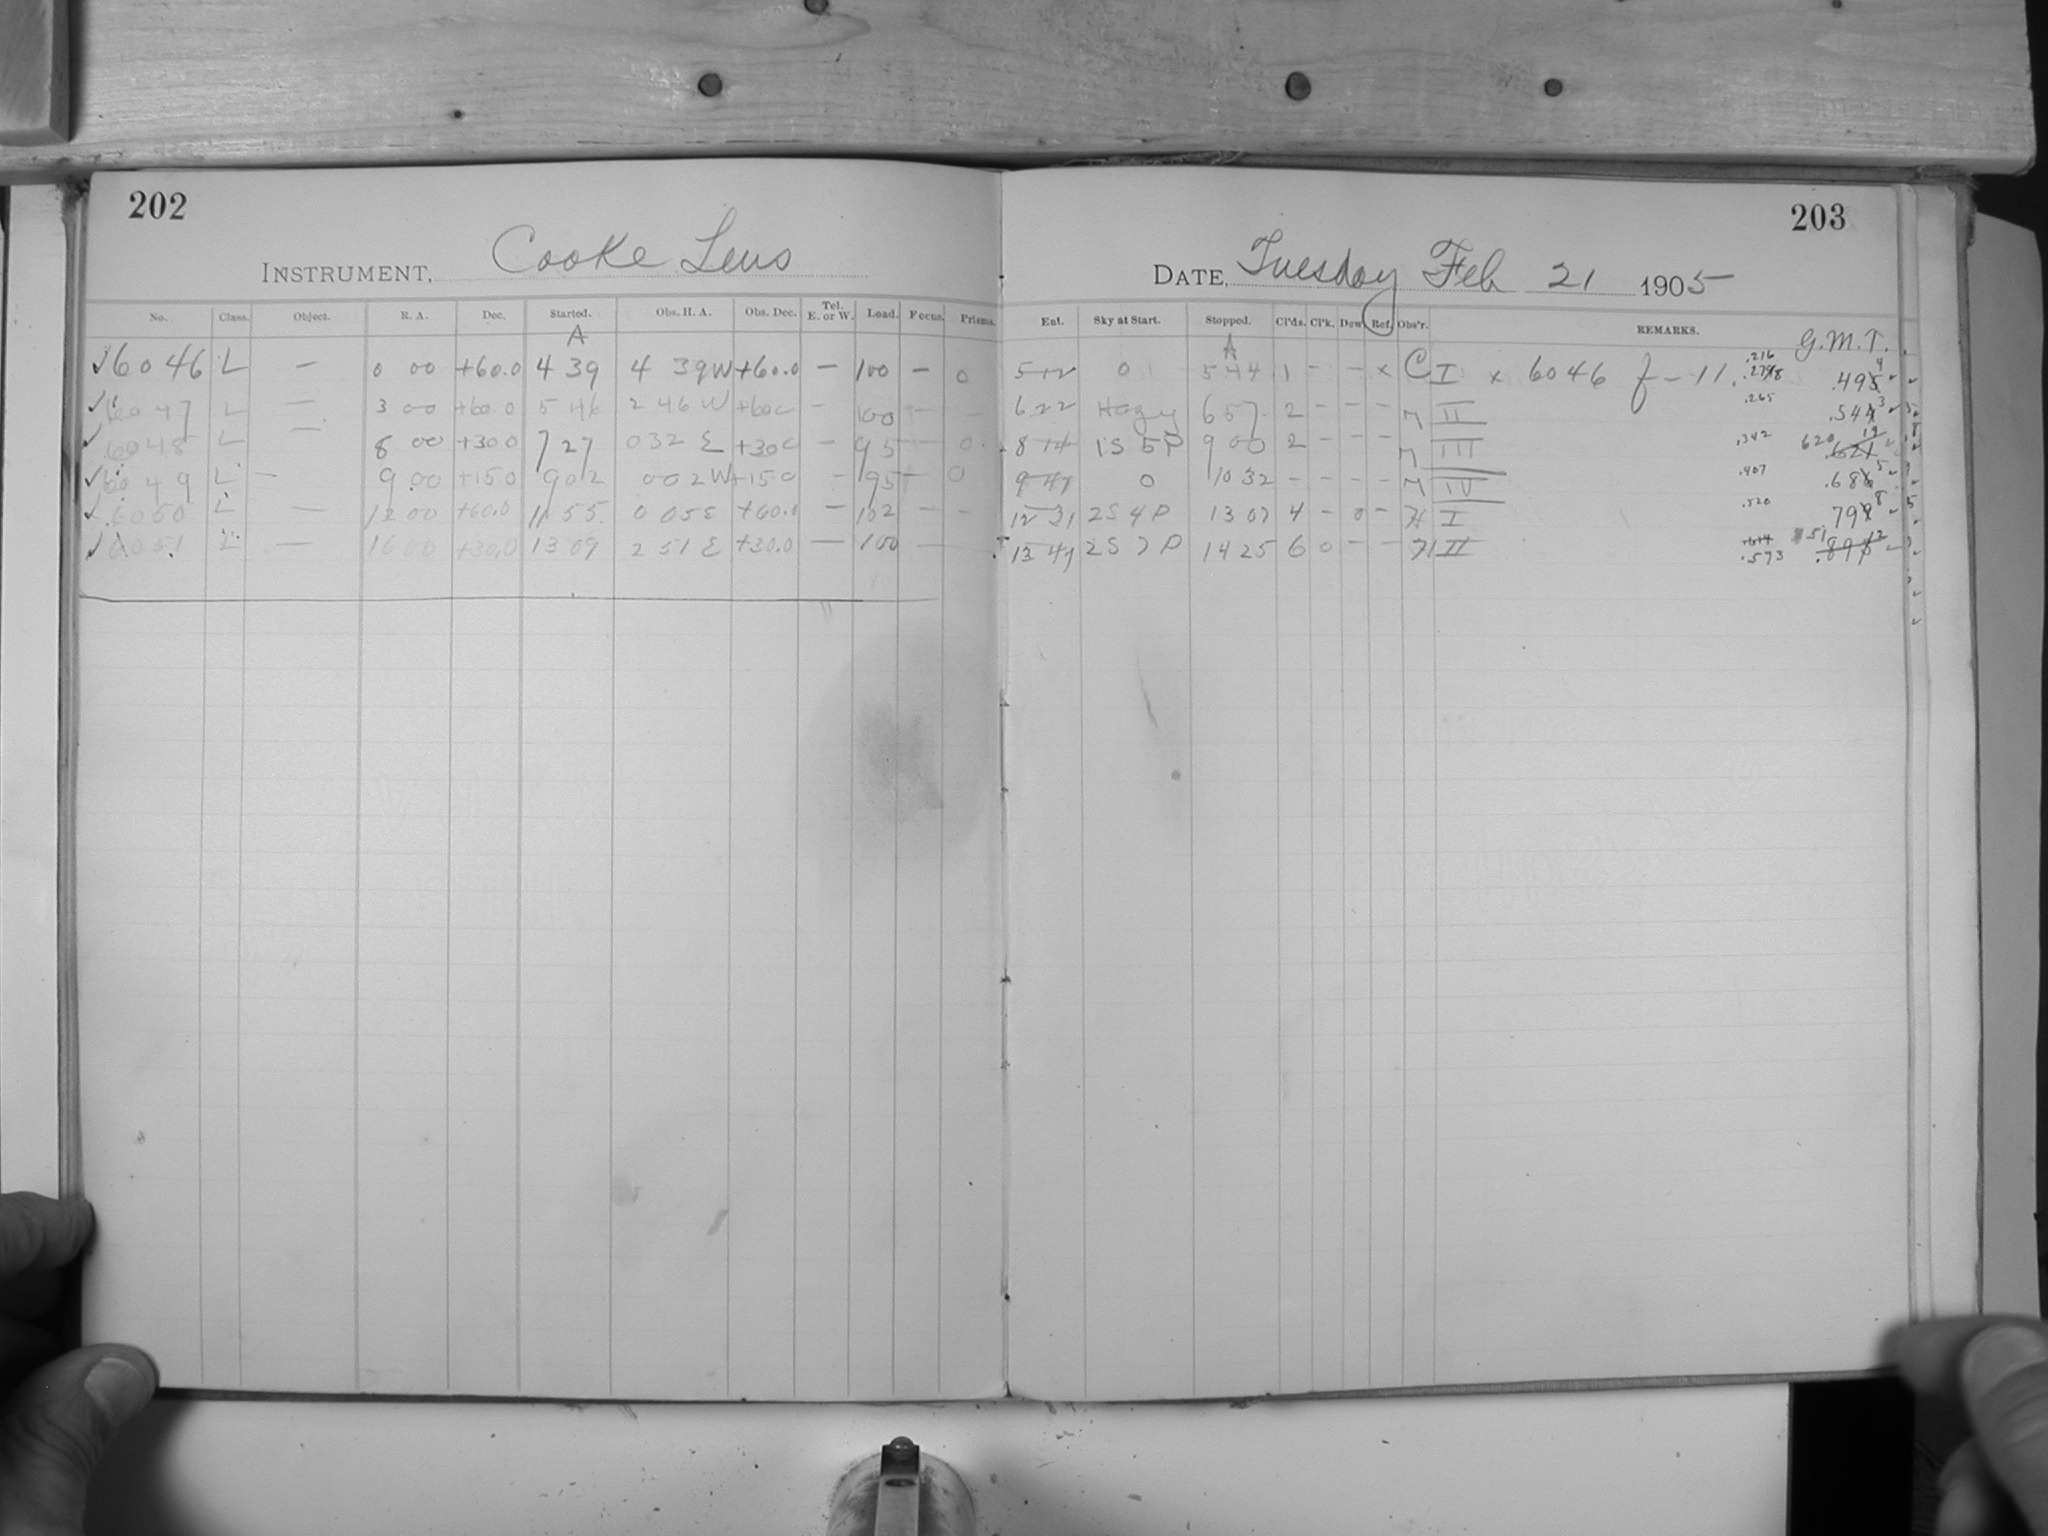 202
203
INSTRUMENT, Cooke Lens
DATE, Tuesday Feb 21 1905
No. Class. Object. R. A. Dec. Started. Obs. H. A. Obs. Dec. Tel. E. or W. Load. Focus. Prisms. Ent. Sky at Start. Stopped. Cl'ds. Cl'k. Dew Ref. Obs'r. REMARKS. G.M.T.
A A
✓ 6046 L — 0 00 +60.0 4 39 4 39 W +60.0 — 100 — 0 5 12 0 5 44 1 - - x C I x 6046 f - 11. .216 .495 4
✓ 6047 L — 3 00 +60.0 5 46 2 46 W +60.0 — 100 — - 6 22 Hazy 6 57 2 - - - II .265 .544 3
✓ 6048 L — 8 00 +30.0 7 27 0 32 E +30.0 — 95 — 0 8 14 1S 5P 9 00 2 - - - III .342 620 .621 19
✓ 6049 L — 9 00 +15.0 9 02 0 02 W +15.0 — 95 — 0 9 47 0 10 32 - - - - IV .407 .686 5
✓ 6050 L — 12 00 +60.0 11 55 0 05 E +60.0 — 102 - - 12 31 2S 4P 13 07 4 - 0 - H I .520 799 8
✓ 6051 L — 16 00 +30.0 13 09 2 51 E +30.0 — 100 — 13 47 2S 7P 14 25 6 0 - - H II .614 .573 851 .893 12